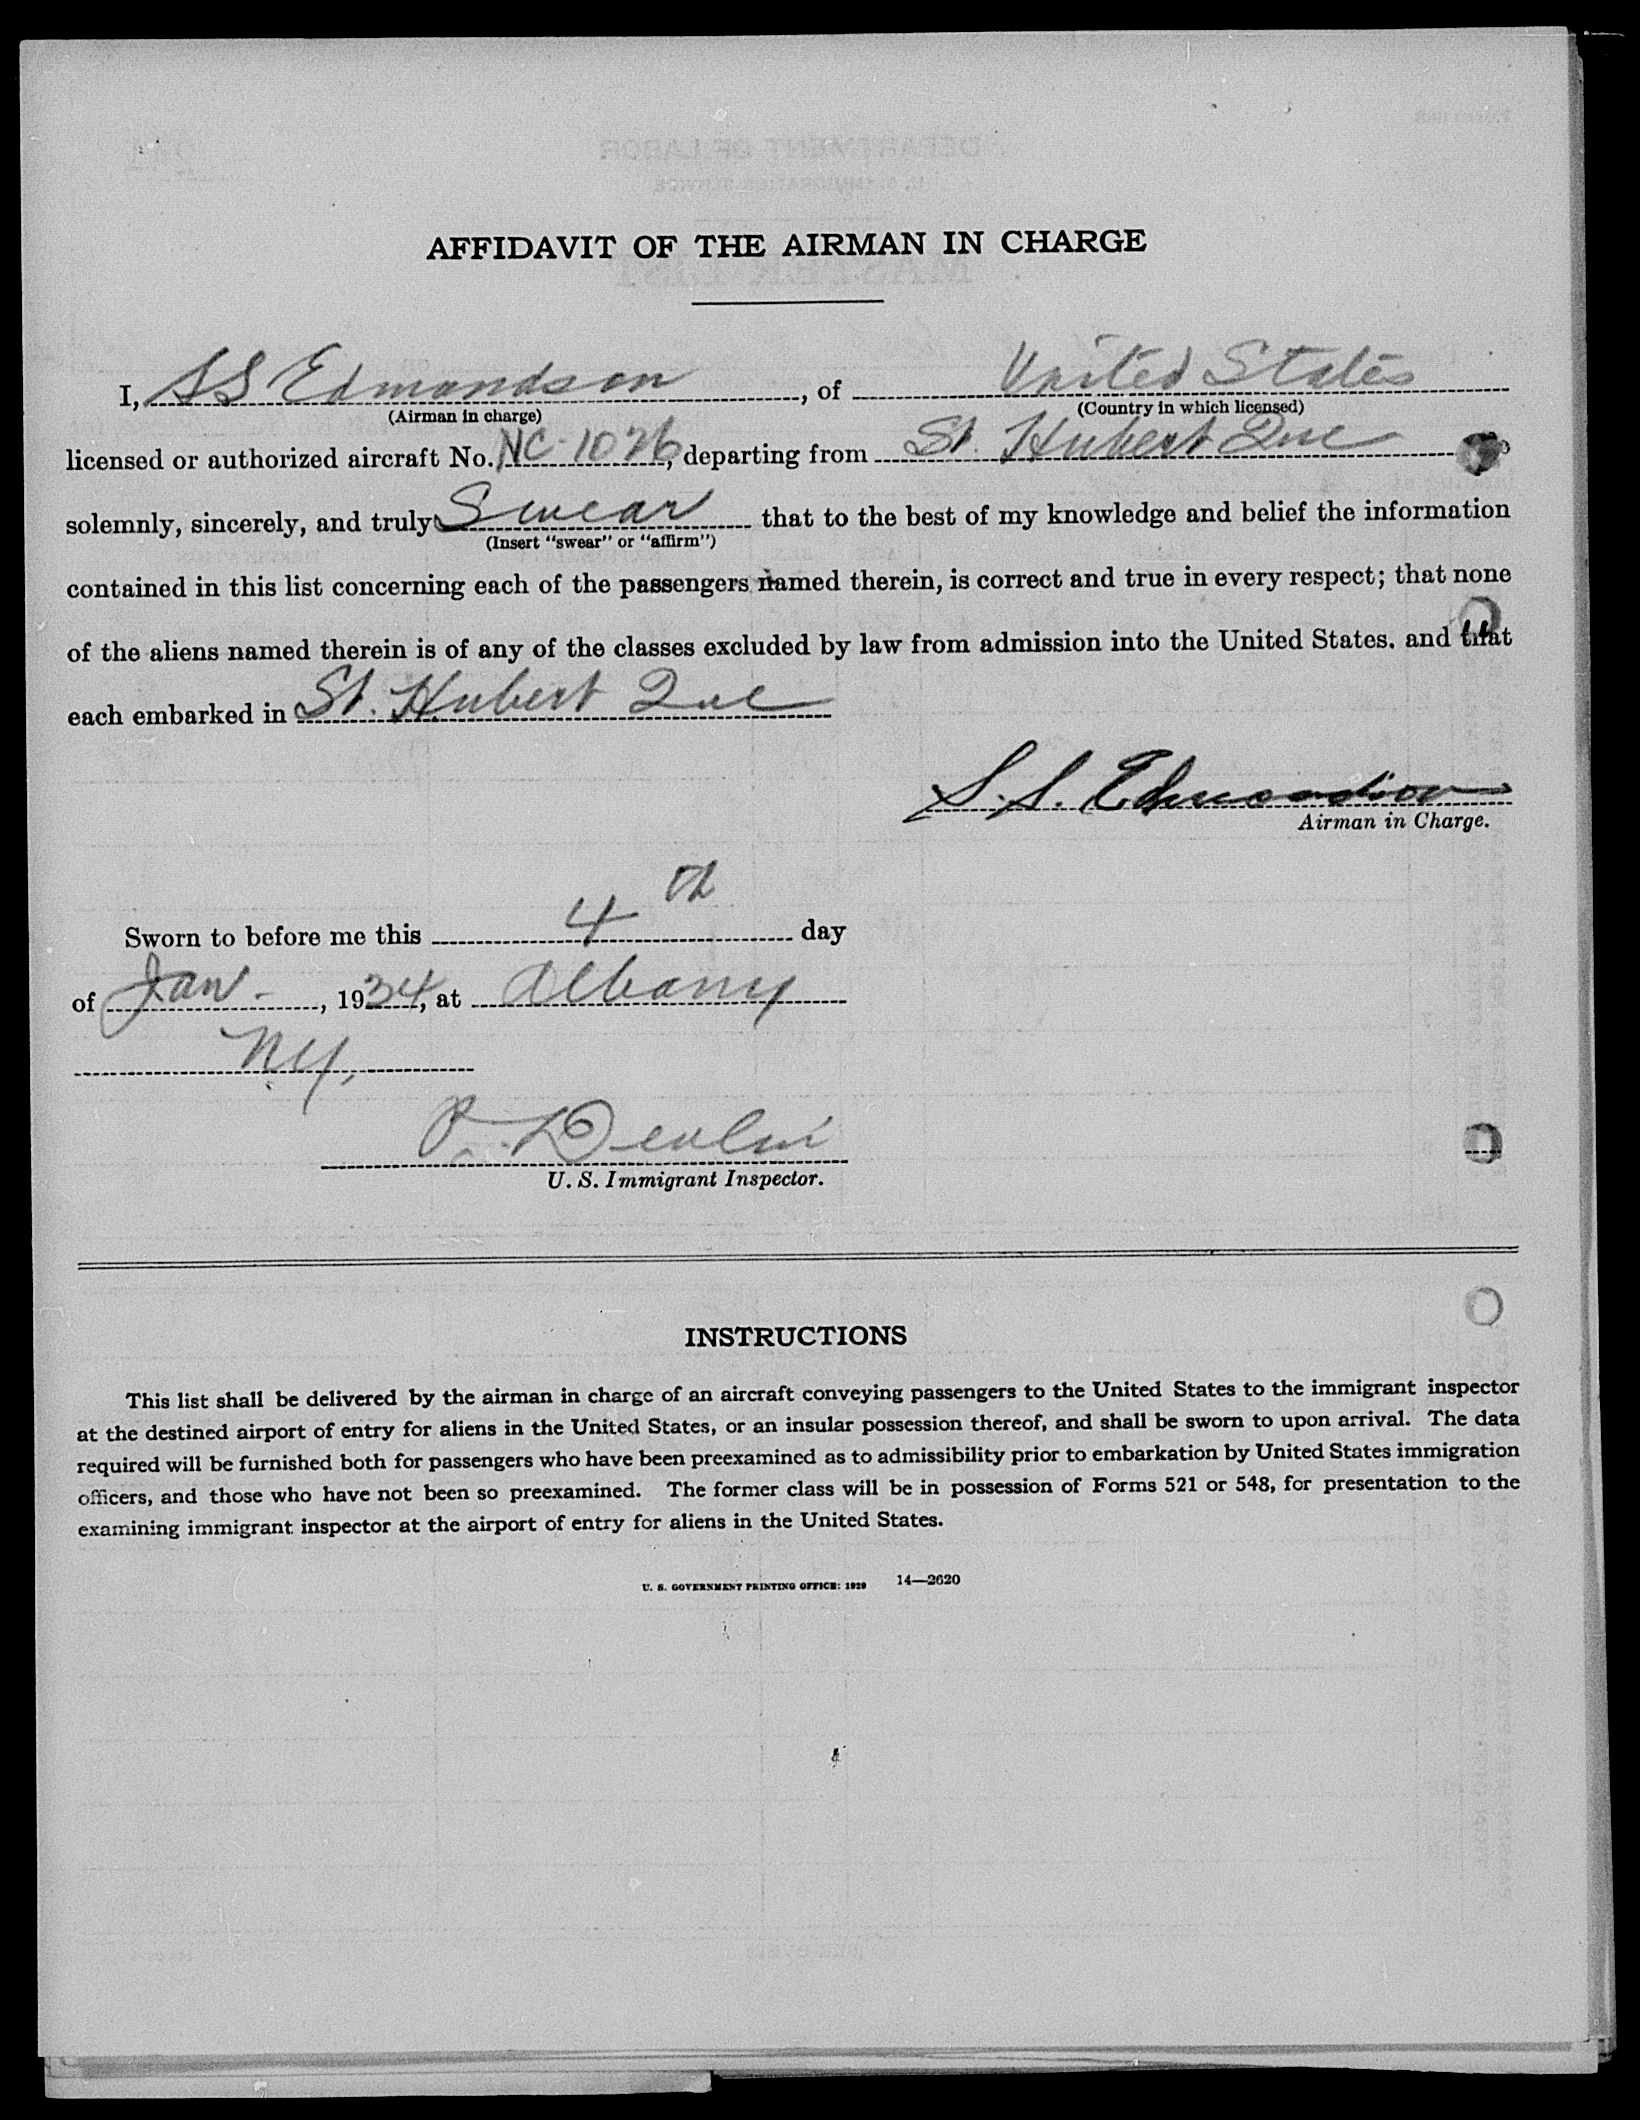 AFFIDAVIT OF THE AIRMAN IN CHARGE
I, SS Edmondson, of United States
(Airman in charge) (Country in which licensed)
licensed or authorized aircraft No. NC-1076, departing from St. Hubert Que
solemnly, sincerely, and truly Swear that to the best of my knowledge and belief the information
(Insert "swear" or "affirm")
contained in this list concerning each of the passengers named therein, is correct and true in every respect; that none
of the aliens named therein is of any of the classes excluded by law from admission into the United States, and that
each embarked in St. Hubert Que
S. S. Edmondson
Airman in Charge.
Sworn to before me this 4th day
of Jan-, 1934, at Albany
N.Y.
P. Devlin
U. S. Immigrant Inspector.
INSTRUCTIONS
This list shall be delivered by the airman in charge of an aircraft conveying passengers to the United States to the immigrant inspector
at the destined airport of entry for aliens in the United States, or an insular possession thereof, and shall be sworn to upon arrival. The data
required will be furnished both for passengers who have been preexamined as to admissibility prior to embarkation by United States immigration
officers, and those who have not been so preexamined. The former class will be in possession of Forms 521 or 548, for presentation to the
examining immigrant inspector at the airport of entry for aliens in the United States.
U. S. GOVERNMENT PRINTING OFFICE: 1929 14—2620